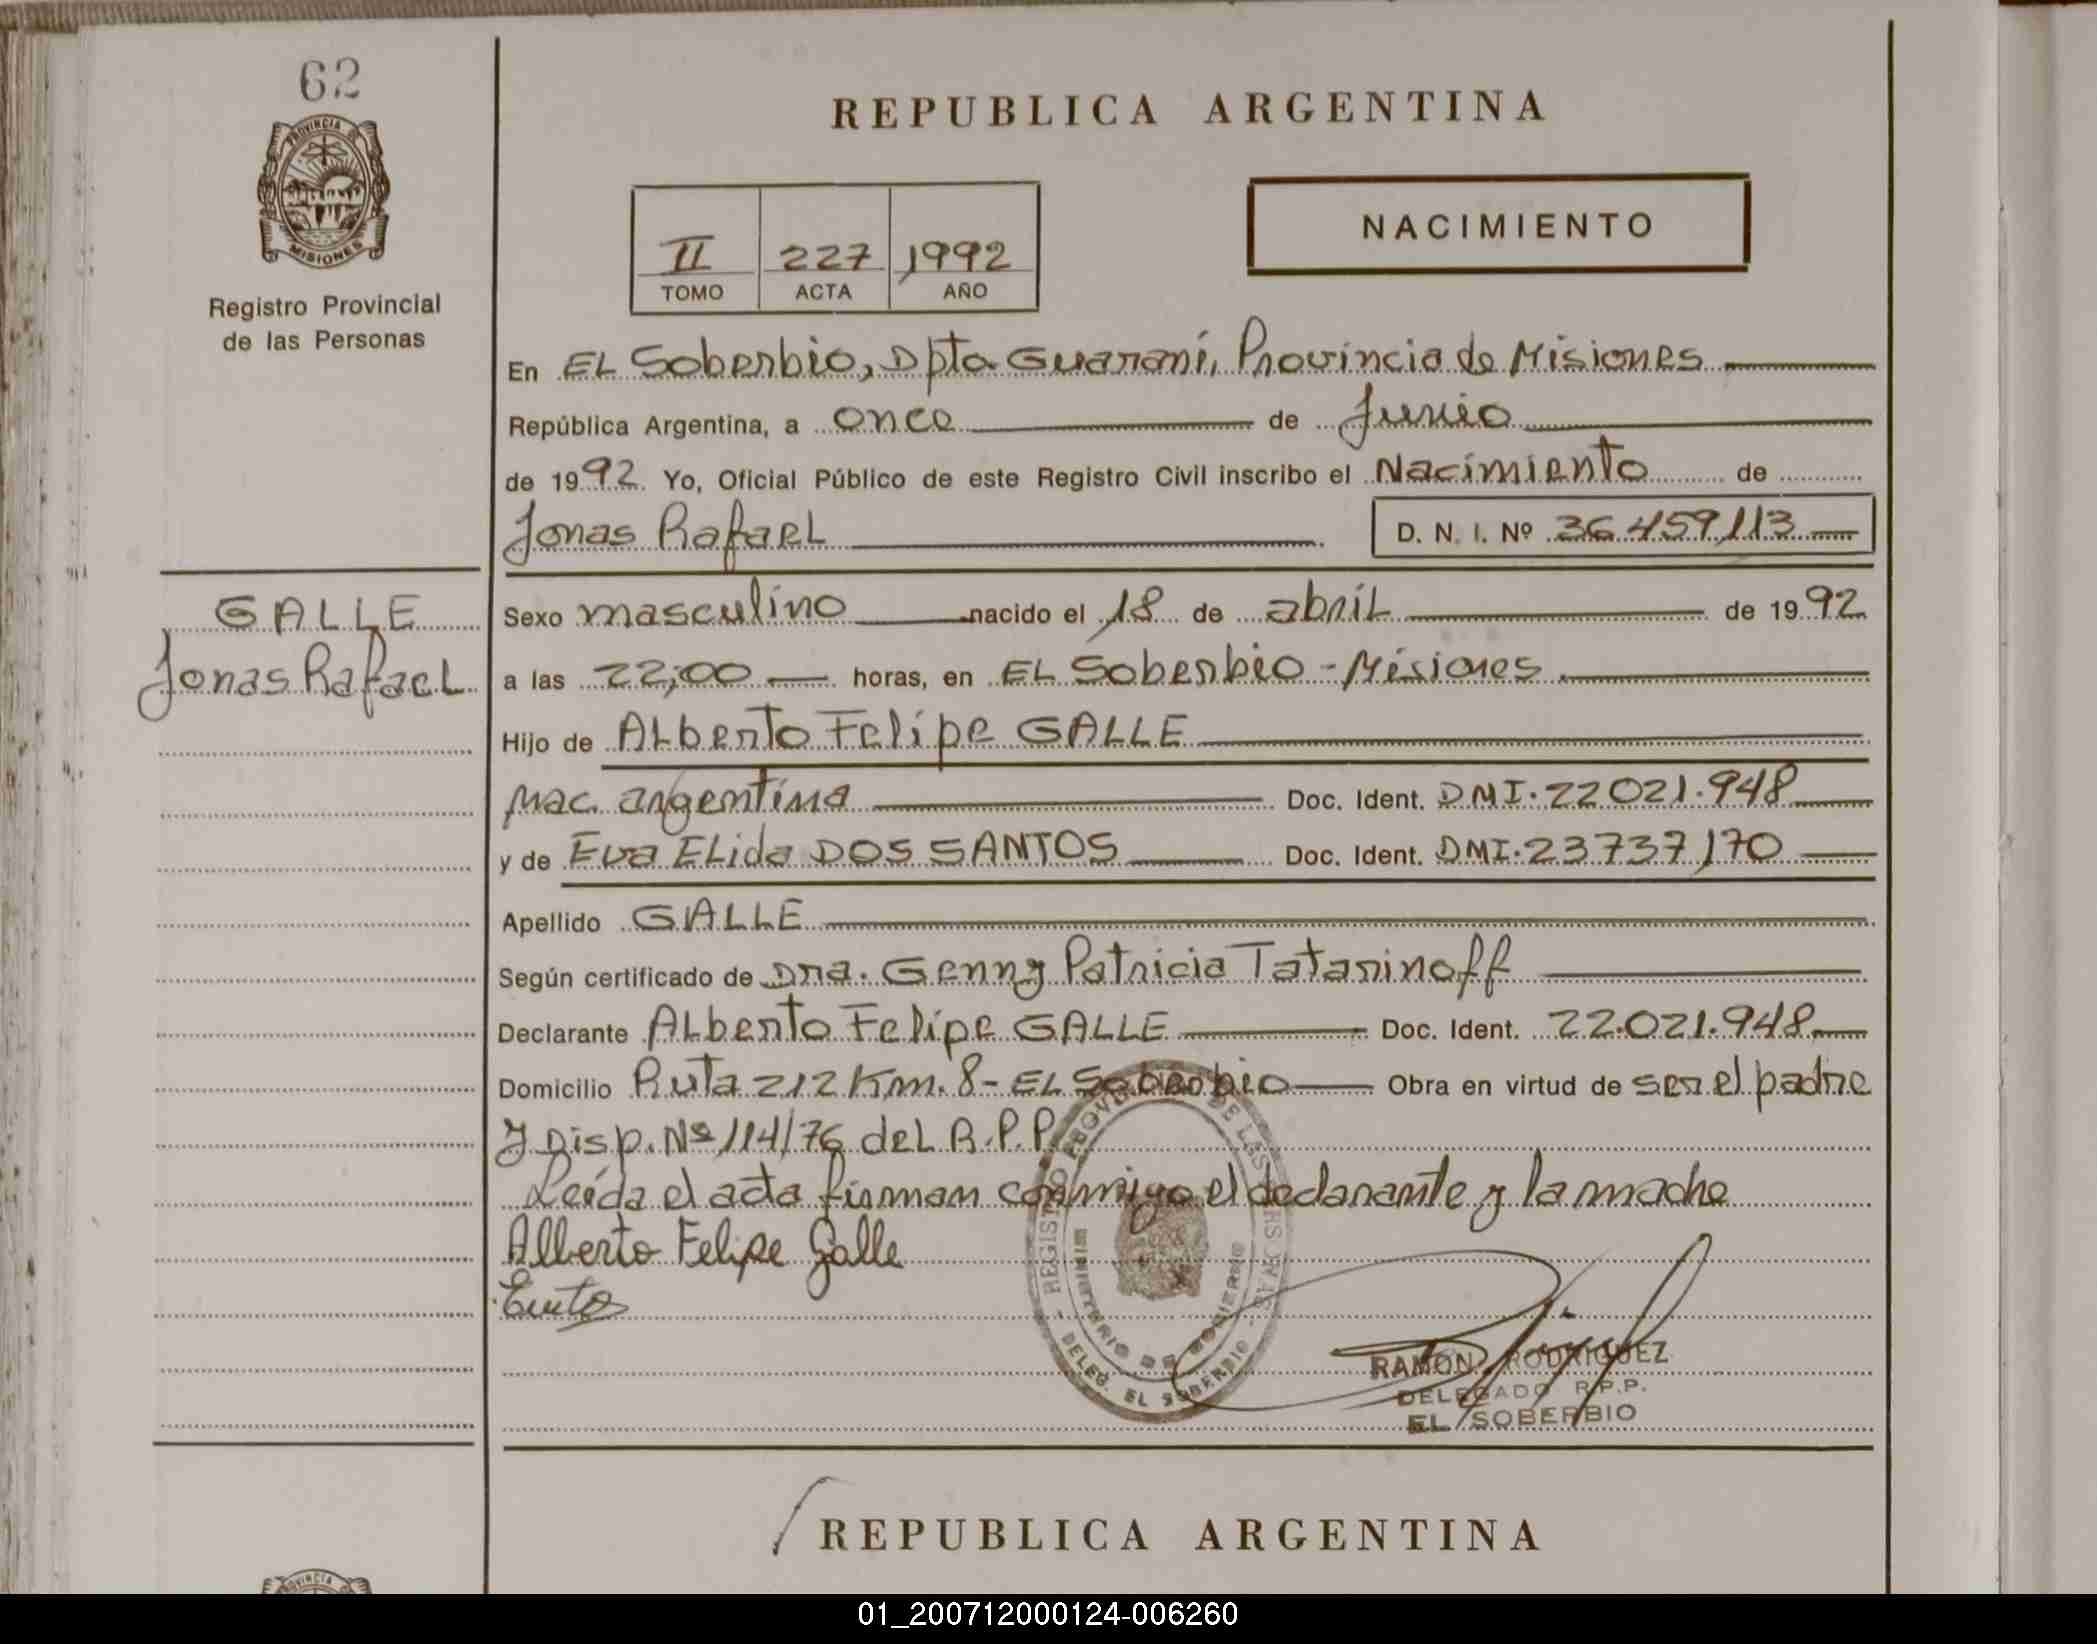 62
PROVINCIA DE
MISIONES
Registro Provincial
de las Personas
REPUBLICA ARGENTINA
II 227 1992
TOMO ACTA AÑO
NACIMIENTO
En EL Soberbio, Dpto Guaraní, Provincia de Misiones
República Argentina, a once de Junio
de 1992 Yo, Oficial Público de este Registro Civil inscribo el Nacimiento de
Jonas Rafael D. N. I. Nº 36.459,113
GALLE
Jonas Rafael
Sexo masculino nacido el 18 de abril de 1992
a las 22,00 horas, en EL Soberbio - Misiones
Hijo de Alberto Felipe GALLE
nac. argentina Doc. Ident. DMI. 22021.948
y de Eva Elida DOS SANTOS Doc. Ident. DMI. 23737170
Apellido GALLE
Según certificado de Dra. Genny Patricia Tatarinoff
Declarante Alberto Felipe GALLE Doc. Ident. 22.021.948
Domicilio Ruta 212 Km. 8 - EL Soberbio Obra en virtud de ser el padre
y Disp. Nº 114/76 del R.P.P.
Leída el acta firman conmigo el declarante y la madre
Alberto Felipe Galle
REGISTRO PROV. DE LAS PERSONAS
MINISTERIO DE GOBIERNO
DELEG. EL SOBERBIO
RAMON RODRIGUEZ
DELEGADO R.P.P.
EL SOBERBIO
REPUBLICA ARGENTINA
PROVINCIA
01_200712000124-006260